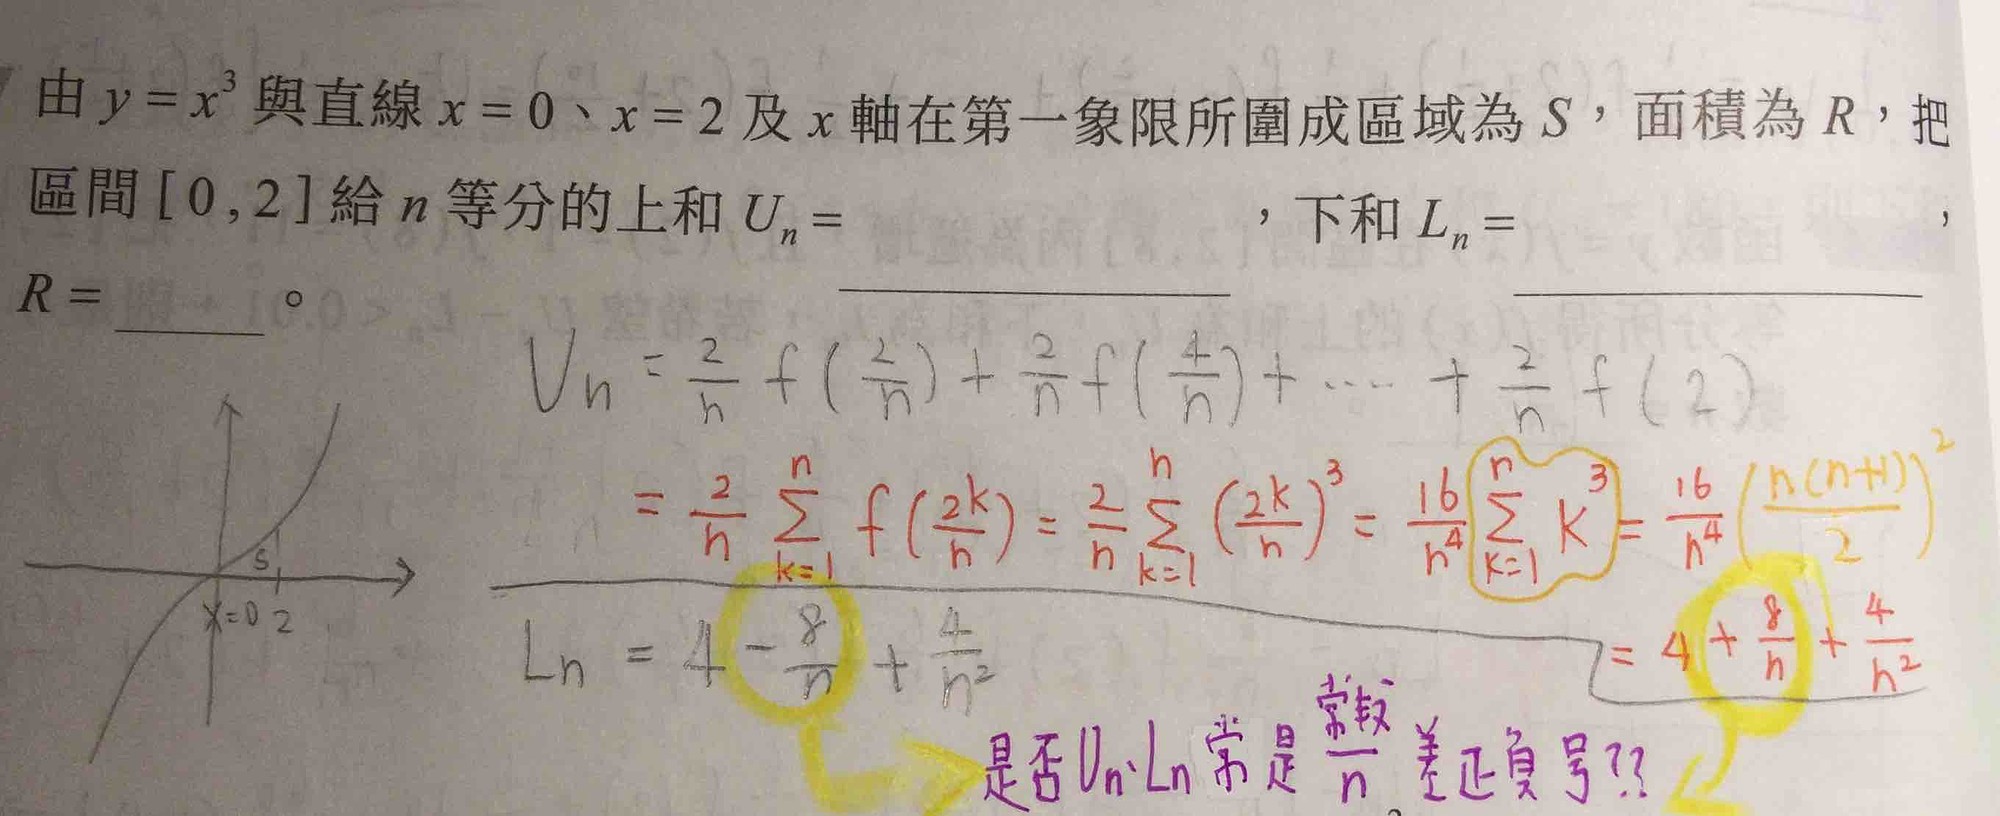 由 y = x³ 與直線 x = 0、x = 2 及 x 軸在第一象限所圍成區域為 S，面積為 R，把
區間 [0,2] 給 n 等分的上和 Uₙ = ________，下和 Lₙ = ________，
R = ______。
Uₙ = 2/n f(2/n) + 2/n f(4/n) + ⋯ + 2/n f(2)
= 2/n Σ_{k=1}^{n} f(2k/n) = 2/n Σ_{k=1}^{n} (2k/n)³ = 16/n⁴ Σ_{k=1}^{n} k³ = 16/n⁴ (n(n+1)/2)²
= 4 + 8/n + 4/n²
S
x=0 2
Lₙ = 4 - 8/n + 4/n²
是否Uₙ、Lₙ常是 常数/n 差正負号??